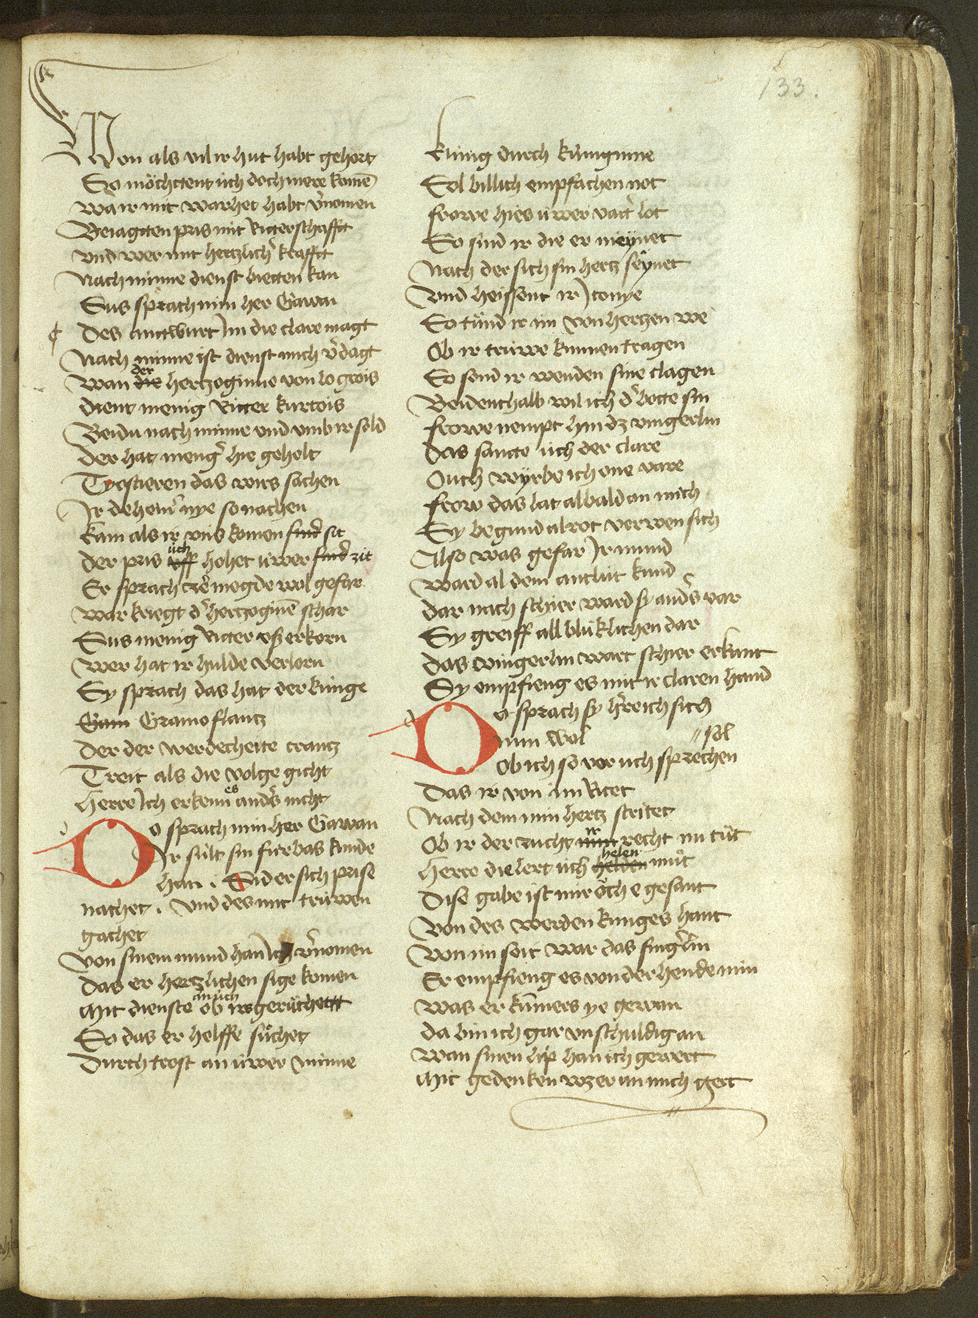 133.
Won als vil ir hut habt gehort
So möchtent üch doch mere komē
Wa ir mit warhet habt v̾nomen
Beiagtten pris mit Ritterschafft
Vnd wer mit hertzlich̾ krafft
Nach minne dienst bietten kan
Sus sprach min her Gawan
Des antwurt Im die clare magt
Nach minne ist dienst mich v̾dagt
Wan der hertzoginne von logrois
dient menig Ritter kurtois
Beidu nach minne vnd vmb ir sold
der hat meng̾ hie geholt
Tyostieren das wirs sachen
Ir dehein̾ nye so nachen
kam als ir vns komen sind sit
der pris üch hohet üwer sind zit
Er sprach zer megde wol gefar
war kriegt d̾ hertzoginē schar
Sus menig Ritter vß erkorn
Wer hat ir hulde verlorn
Sy sprach das hat der künge
Gam Gramoflantz
Der der werdecheite crantz
Treit als die volge gicht
Herre Ich erkenn es anders nicht
Do sprach min her Gawan
Ir sült sin fürbas künde
han . Sid er sich prise
nachet . vnd des mit trüwen
gachet
Von sinem mund han Ich v̾nomen
Das er hertzlichen sige komen
Mit dienste an üch ob irs gerüchet
So das er helffe süchet
Durch trost an üwer minne
kunig durch küniginne
Sol billich empfachen not
frowe hies üwer vatt̾ lot
So sind ir die er meÿnet
Nach der sich sin hertz seÿnet
Vnd heissent ir Itonye
So tünd ir im von hertzen we
Ob ir trüwe kunnen tragen
So sond ir wenden sine clagen
Beidenthalb wil ich d̾ botte sin
frowe nempt hin dz vingerlin
Das sante üch der clare
Ouch wÿrbe ich one vare
frow das lat albald an mich
Sy begund alrot verwen sich
Also was gefar Ir mund
Ward al dem antlüt kund
dar nach schier ward sy and̾s var
Sy greiff all blüklichen dar
das vingerlin wart schier erkant
Sy empfieng es mit ir claren hand
Do sprach sy h̾re ich sich
nun wol
Ob ich so vor üch sprechen sol
Das ir von im ritet
Nach dem min hertz stritet
Ob ir der zucht ir recht nu tüt
Herre die lert üch helen müt
Dise gabe ist mir öch e gesant
Von des werden kunges hant
Von im seit war das fing̾lin
Er empfieng es von der hende min
was er kumers ye gewan
da bin ich gar vnschuldig an
Wan sinen lip han ich gewert
Mit gedenken wz er an mich gert